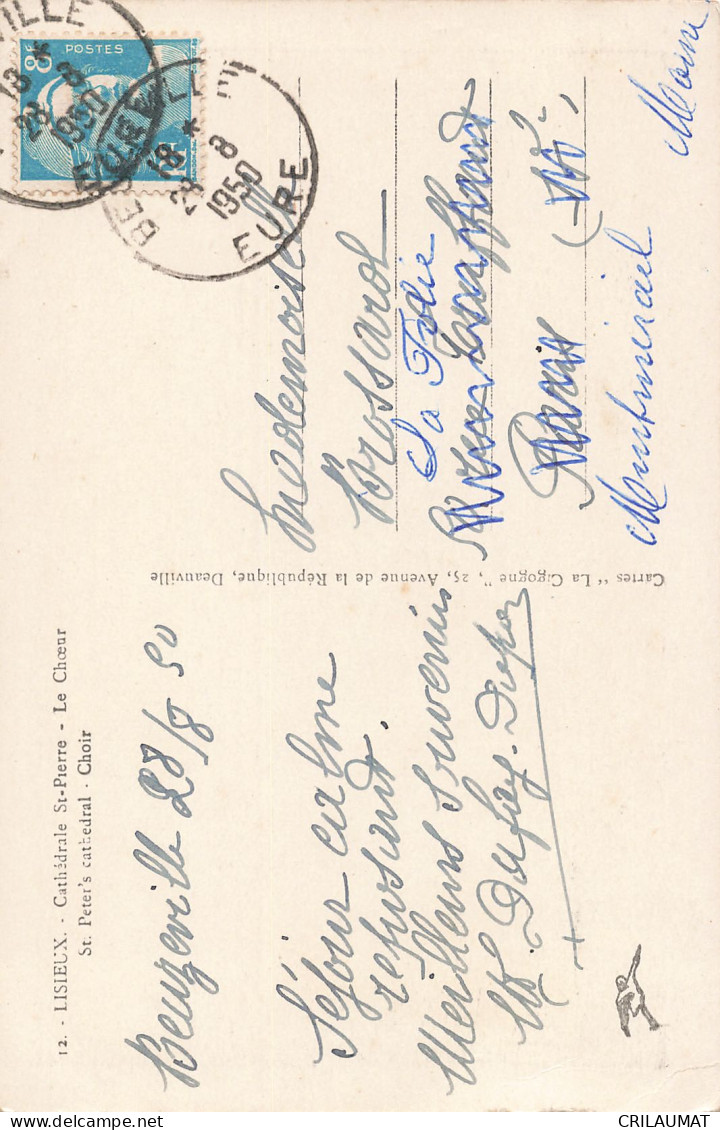 12. - LISIEUX. - Cathédrale St-Pierre - Le Chœur
St. Peter's cathedral - Choir
Beuzeville 28/8 50
Séjour calme
refusant.
Meilleurs souvenirs
M. Dufay-
Cartes " La Cigogne ", 25, Avenue de la République, Deauville
8F
POSTES
VILLE
18 *
28 - 8
1950
BEUZEVILLE
18 *
28 - 8
1950
EURE
Mademoiselle
Brossard
La Folie
Paris
Montmirail
Marne
CRILAUMAT